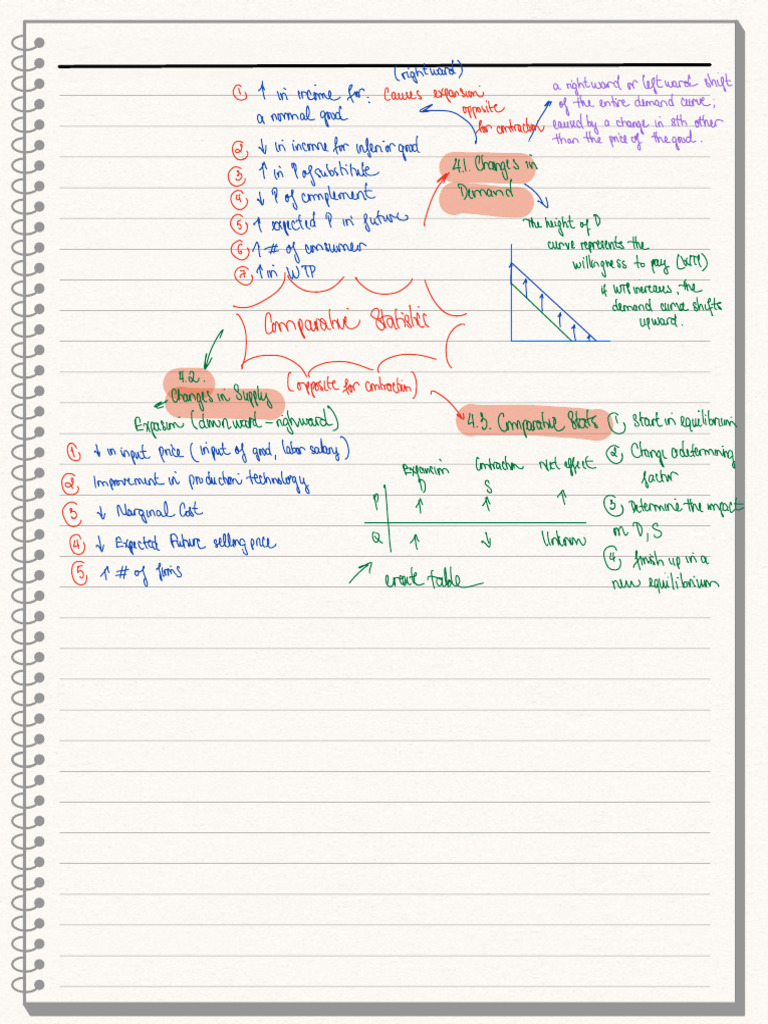 (rightward)
① ↑ in income for: Causes expansion
a normal good
opposite
for contraction
② ↓ in income for inferior good
③ ↑ in P of substitute
④ ↓ P of complement
⑤ ↑ expected P in future
⑥ ↑ # of consumer
⑦ ↑ in WTP
a rightward or leftward shift
of the entire demand curve;
caused by a change in sth other
than the price of the good.
4.1. Changes in
Demand
The height of D
curve represents the
willingness to pay (WTP)
if WTP increases, the
demand curve shifts
upward.
Comparative Statistics
4.2.
Changes in Supply
(opposite for contraction)
Expansion (downward - rightward)
① ↓ in input price (input of good, labor salary)
② Improvement in production technology
③ ↓ Marginal Cost
④ ↓ Expected Future selling price
⑤ ↑ # of firms
4.3. Comparative Stats
① Start in equilibrium
② Change a determining
factor
③ Determine the impact
on D, S
④ finish up in a
new equilibrium
Expansion Contraction Net effect
D S
P ↑ ↑ ↑
Q ↑ ↓ Unknown
create table